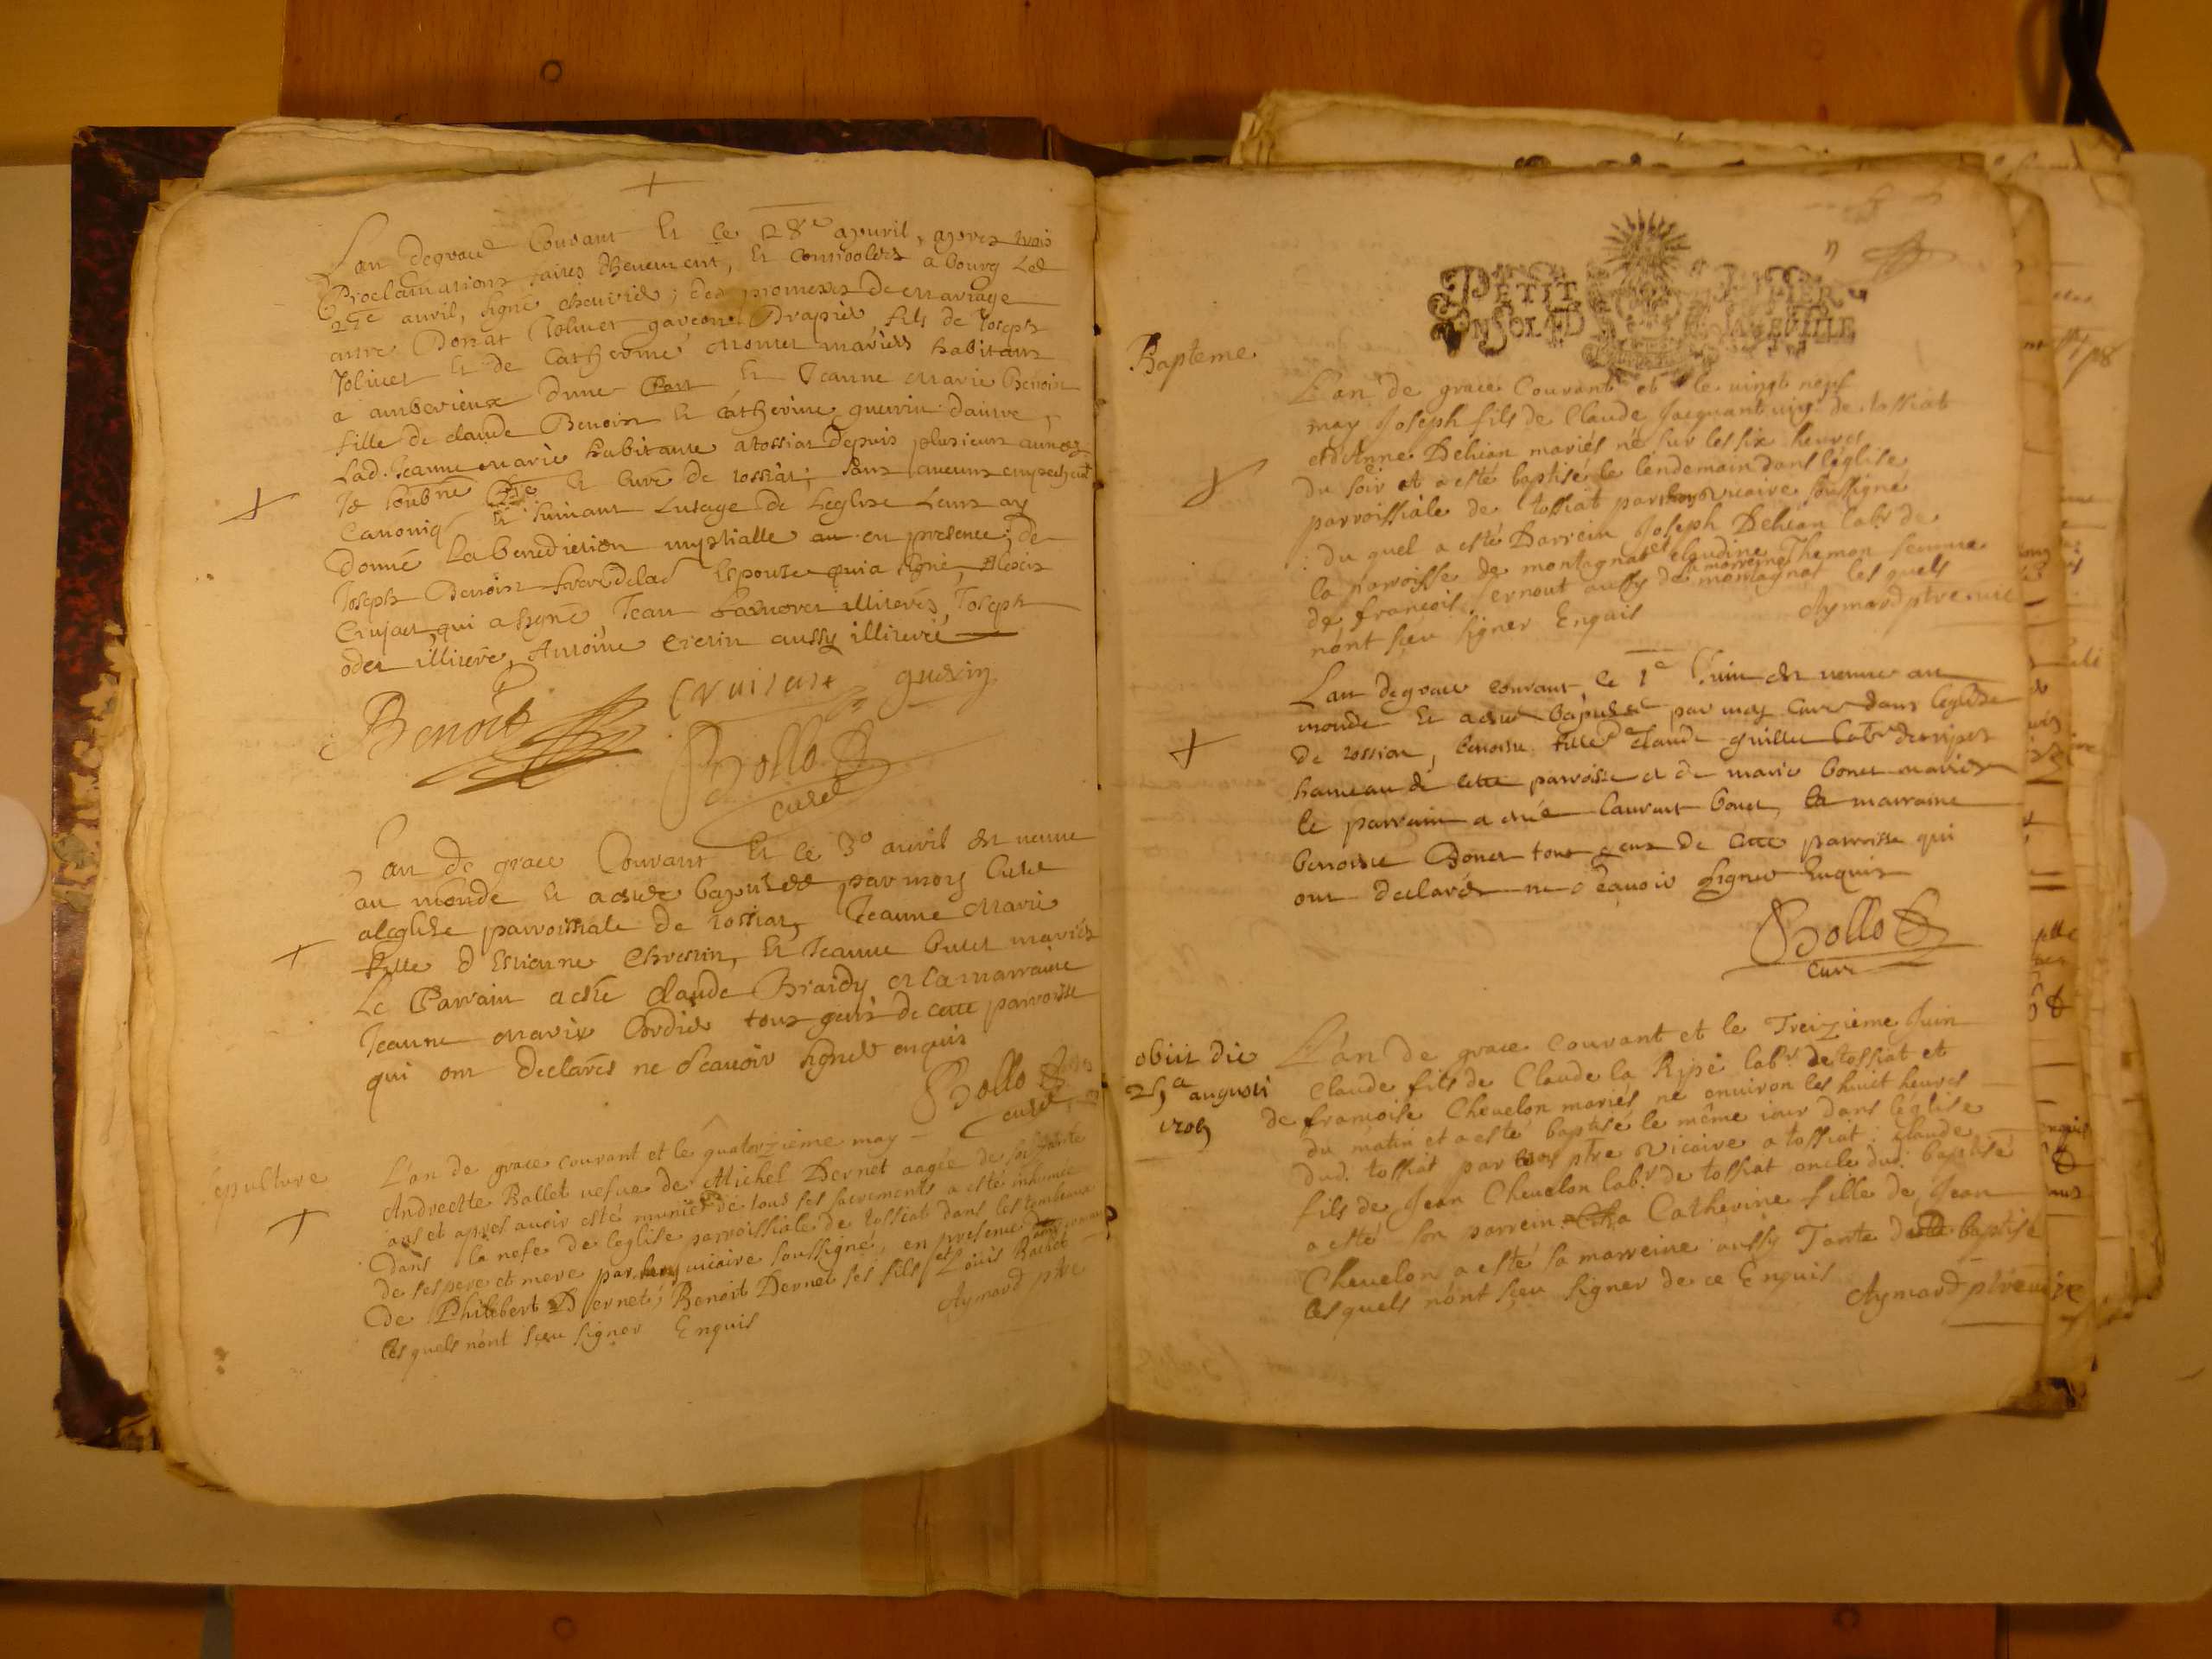 Lan de grace Courant Et Ce 28e apvril, apres trois
Proclamations faites duement, Et controolées a bourg Led
27e auril, signé chevrier; des promesses de Mariage
entre Donat Joliuet garcon Drapier fils de Joseph
Joliuet Et de Catherine Monnet mariés habitans
a amberieux dune Part Et Jeanne Marie Benoist
fille de claude Benoist Et Catherine guerrin dautre,
Lad. Jeanne Marie habitante a tossiat depuis plusieurs années
Je soubné Ptre Et Curé de tossiat, sans aucuns empechent
Canoniq Et suiuant Lusage de Leglise Leurs ay
donné La benediction nuptialle en presence; de
Joseph Benoist frere delad Espouse qui a signé, Alexis
Crujat qui a signé, Jean illiterés, Joseph
odet illiteré, Antoine Cretin aussy illiteré
Benoist Cruiat guerin
Bollo
curé
Lan de grace Courant Et Ce 3o auril est venue
au monde Et a estée baptisée par moy Curé
a leglise parroissiale de tossiat, Jeanne Marie
fille d Estienne Chrestin, Et Jeanne buter mariés
Le Parrain a esté claude Braidy et la marraine
Jeanne Marie Cordier tous gens de cette parroisse
qui ont declarés ne scauoir signer enquis
Bollo
curé
sepulture L'an de grace courant et le quatorzieme may
Andreatte Ballet vefue de Michel Dernet aagée de soixante
ans et apres auoir esté munie de tous ses sacrements a esté inhumée
dans la nefe de leglise parroissiale de tossiat dans les tombeaux
de ses pere et mere par vicaire soussigné, en presence
de Philebert Dernet, Benoit Dernet ses fils et Louis Bachet
les quels n'ont sceu signer Enquis Aymard ptre
PETIT PAPIER
UN SOL LA FEVILLE
Bapteme L'an de grace Courant et le uingt neuf
may Joseph fils de Claude Jacquant uig. de tossiat
et d'Anne Dehian mariés né sur les six heures
du soir et a esté baptisé le lendemain dans l'église
parroissiale de tossiat par vicaire soussigné
du quel a esté Parrein Joseph Dehian labr de
la parroisse de montagnat et claudine Themon femme
de francois ernout aussy de montagnat la marreine les quels
n'ont sceu signer Enquis Aymard ptre uic
Lan de grace courant, Ce 1e Juin est venue au
monde Et a estée baptisée par moy Curé dans leglise
de tossiat, benoiste fille de claude guillet labr
hameau de cette parroisse et de marie bonet mariés
le parrain a esté laurent bonet, la marraine
benoiste Bonet tous gens de cette parroisse qui
ont declarés ne scauoir signer Enquis
Bollo
curé
obiit die
25a augusti
1705
L'an de grace courant et le Treizieme Juin
Claude fils de Claude la Ripe labr. de tossiat et
de francoise Cheuelon mariés né enuiron les huit heures
du matin et a esté baptisé le même iour dans l'église
dud. tossiat par ptre vicaire a tossiat. Claude
fils de Jean Cheuelon labr. de tossiat oncle dud. baptisé
a esté son parrein Catherine fille de Jean
Cheuelon a esté sa marreine aussy Tante dud baptisé
lesquels n'ont sceu signer de ce Enquis Aymard ptre uic